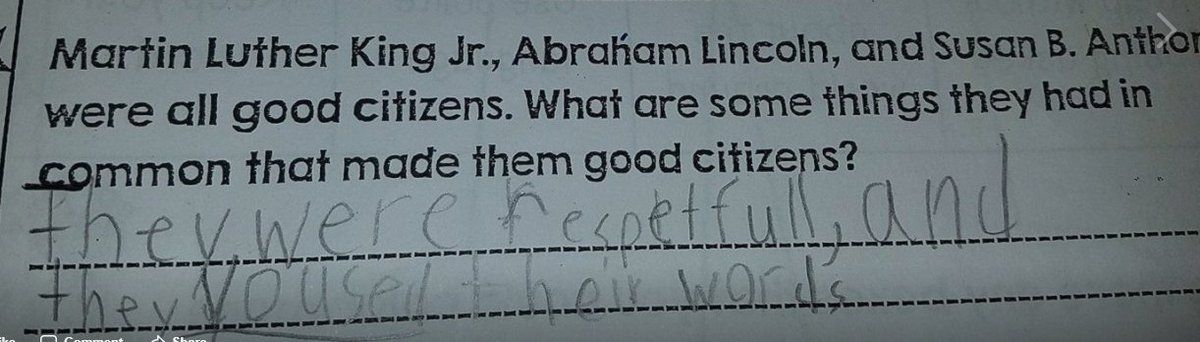 Martin Luther King Jr., Abraham Lincoln, and Susan B. Anthon
were all good citizens. What are some things they had in
common that made them good citizens?
they were respetfull, and
they Yoused their words
Comment Share